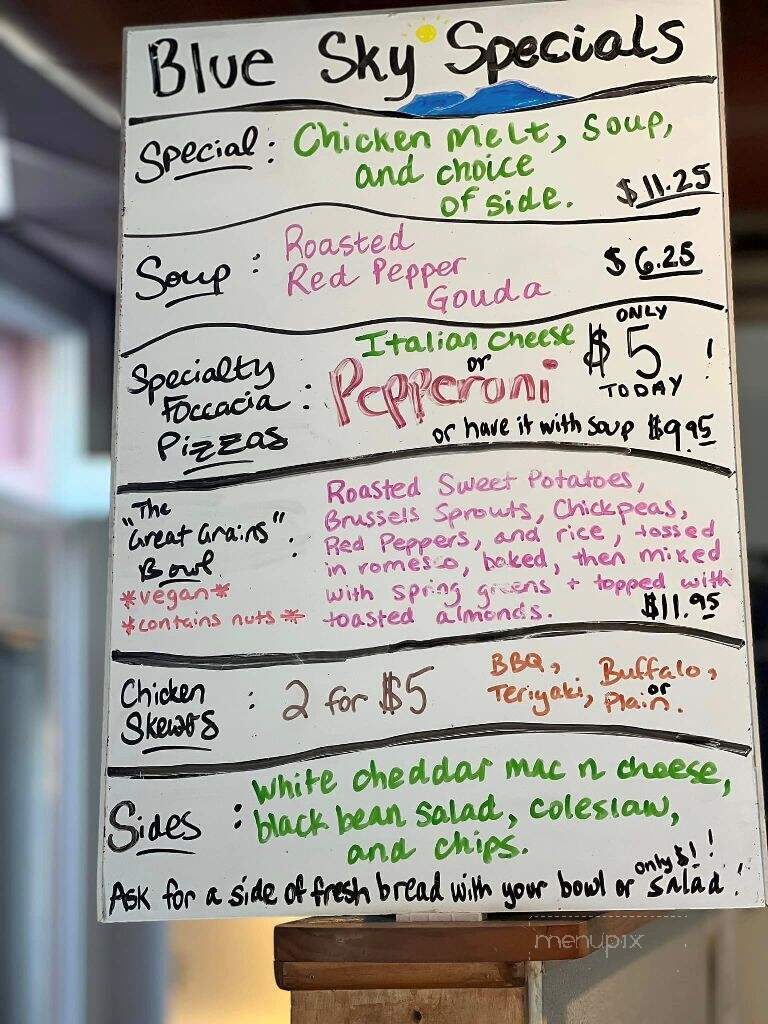 Blue Sky Specials
Special: Chicken Melt, Soup,
and choice
of side. $11.25
Soup: Roasted
Red Pepper
Gouda
$6.25
Specialty
Foccacia
Pizzas :
Italian Cheese
or
Pepperoni
ONLY
$5!
TODAY
or have it with soup $9.95
"The
Great Grains"
Bowl :
*vegan*
*contains nuts*
Roasted Sweet Potatoes,
Brussels Sprouts, Chickpeas,
Red Peppers, and rice, tossed
in romesco, baked, then mixed
with spring greens + topped with
toasted almonds. $11.95
Chicken
Skewers :
2 for $5
BBQ, Buffalo,
Teriyaki, or
Plain.
Sides :
white cheddar mac n cheese,
black bean salad, coleslaw,
and chips.
only $1!
Ask for a side of fresh bread with your bowl or salad!
menupix